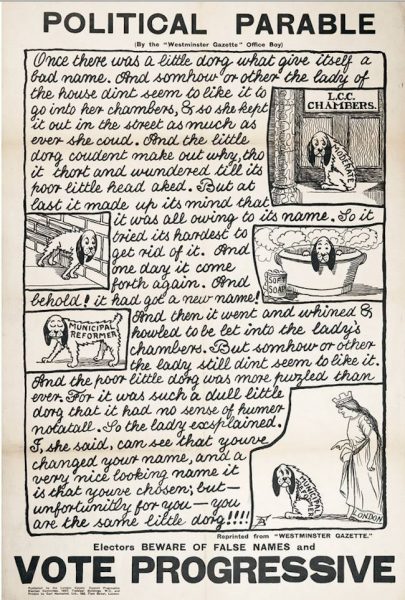 POLITICAL PARABLE
(By the "Westminster Gazette" Office Boy)
Once there was a little dorg what give itself a
bad name. And somhow or other the lady of
the house dint seem to like it to
go into her chambers, & so she kept
it out in the street as much as
ever she coud. And the little
dorg coudent make out why, tho
it thort and wundered till its
poor little head aked. But at
last it made up its mind that
it was all owing to its name. So it
tried its hardest to
get rid of it. And
one day it come
forth again. And
behold! it had got a new name!
And then it went and whined &
howled to be let into the lady's
chambers. But somhow or other
the lady still dint seem to like it.
And the poor little dorg was more puzled than
ever. For it was such a dull little
dorg that it had no sense of humer
notatall. So the lady exsplained.
I, she said, can see that youve
changed your name, and a
very nice looking name it
is that youve chosen; but—
unfortunitly for you— you
are the same little dorg!!!!
L.C.C.
CHAMBERS.
MODERATE
SOFT
SOAP
MUNICIPAL
REFORMER
MUNICIPAL
REFORMER
LONDON
Reprinted from "WESTMINSTER GAZETTE."
Electors BEWARE OF FALSE NAMES and
VOTE PROGRESSIVE